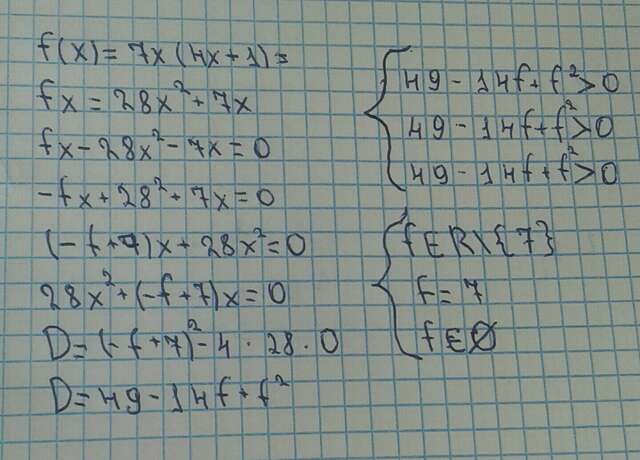 f(x) = 7x (4x+1) =
fx = 28x² + 7x
fx - 28x² - 7x = 0
-fx + 28² + 7x = 0
(-f+7)x + 28x² = 0
28x² + (-f+7)x = 0
D = (-f+7)² - 4 · 28 · 0
D = 49 - 14f + f²
49 - 14f + f² > 0
49 - 14f + f² > 0
49 - 14f + f² > 0
f ∈ R \ {7}
f = 7
f ∈ Ø